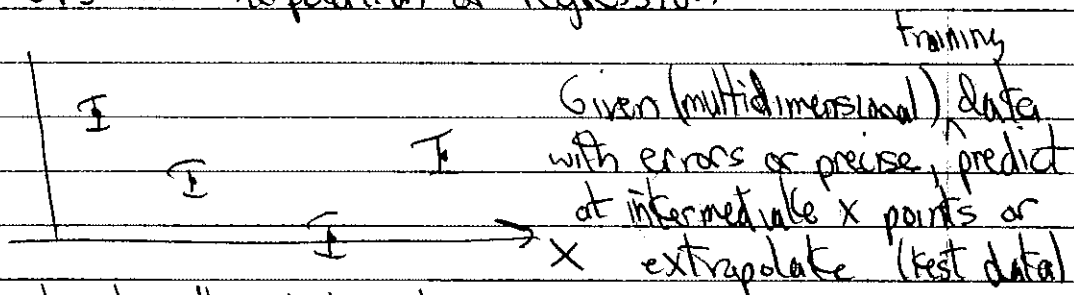 regression
training
Given (multidimensional) ^ data
with errors or precise, predict
at intermediate x points or
x extrapolate (test data)